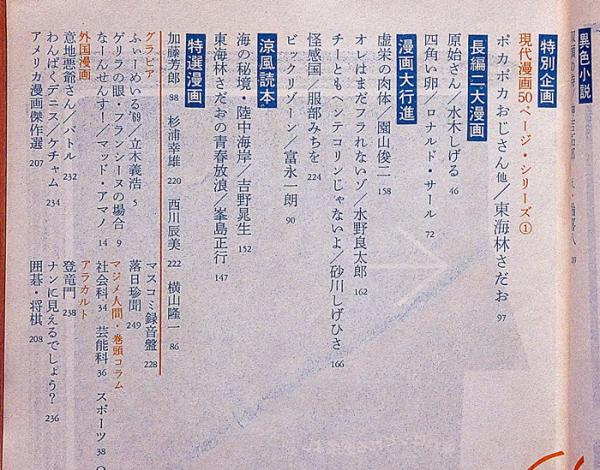 異色小説
特別企画
現代漫画50ページ・シリーズ①
ポカポカおじさん他／東海林さだお 97
長編二大漫画
原始さん／水木しげる 46
四角い卵／ロナルド・サール 72
漫画大行進
虚栄の肉体／園山俊二 158
オレはまだフラれないゾ／水野良太郎 162
チーともヘンテコリンじゃないよ／砂川しげひさ 166
怪感国／服部みちを 224
ビックリゾーン／富永一朗 90
涼風読本
海の秘境・陸中海岸／吉野晁生 152
東海林さだおの青春放浪／峯島正行 147
特選漫画
加藤芳郎 88 杉浦幸雄 220 西川辰美 222 横山隆一 86
グラビア
ふぃーめいる'69／立木義浩 5
ゲリラの眼・フランシーヌの場合 9
なーんせんす！／マッド・アマノ 14
外国漫画
意地悪爺さん／バトル 232
わんぱくデニス／ケチャム 234
アメリカ漫画傑作選 207
マスコミ録音盤 228
落日珍聞 249
マジメ人間・巻頭コラム
社会科 34 芸能科 36 スポーツ 38
アラカルト
登竜門 238
ナンに見えるでしょう？ 236
囲碁・将棋 208